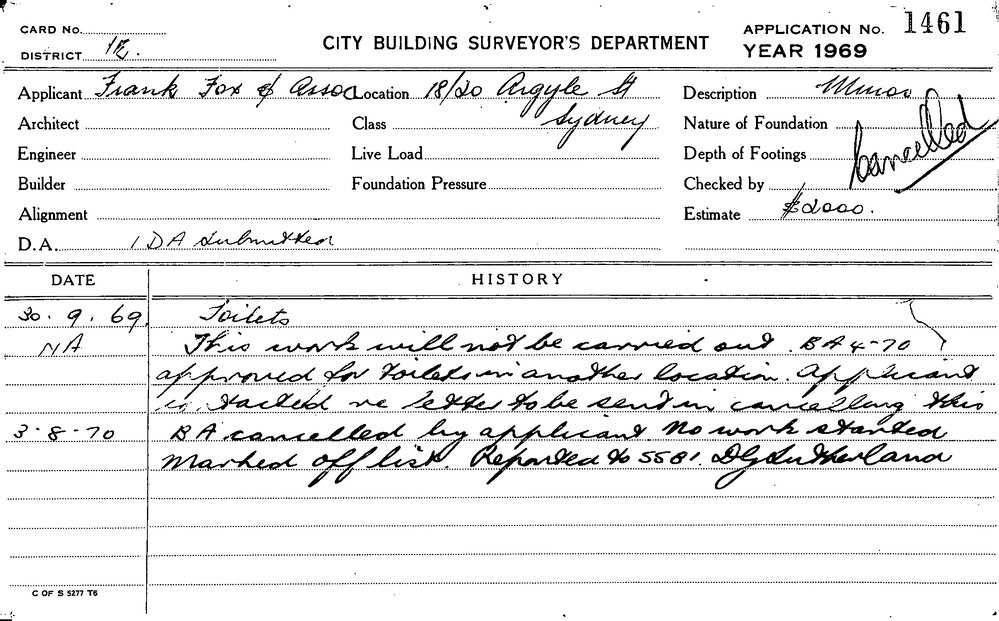 CARD No.
DISTRICT 1E.
CITY BUILDING SURVEYOR'S DEPARTMENT
APPLICATION No. 1461
YEAR 1969
Applicant Frank Fox & Assoc Location 18/20 Argyle St Description Minor
Architect Class Sydney Nature of Foundation
Engineer Live Load Depth of Footings
Cancelled
Builder Foundation Pressure Checked by
Alignment Estimate $2000.
D.A. 1 DA submitted
DATE HISTORY
30.9.69 Toilets
NA This work will not be carried out. BA 4-70
approved for toilets in another location. Applicant
re letter to be sent in cancelling this
3-8-70 BA cancelled by applicant. No work started
Marked off list. Reported to 5581. DG Sutherland
C OF S 5277 T6